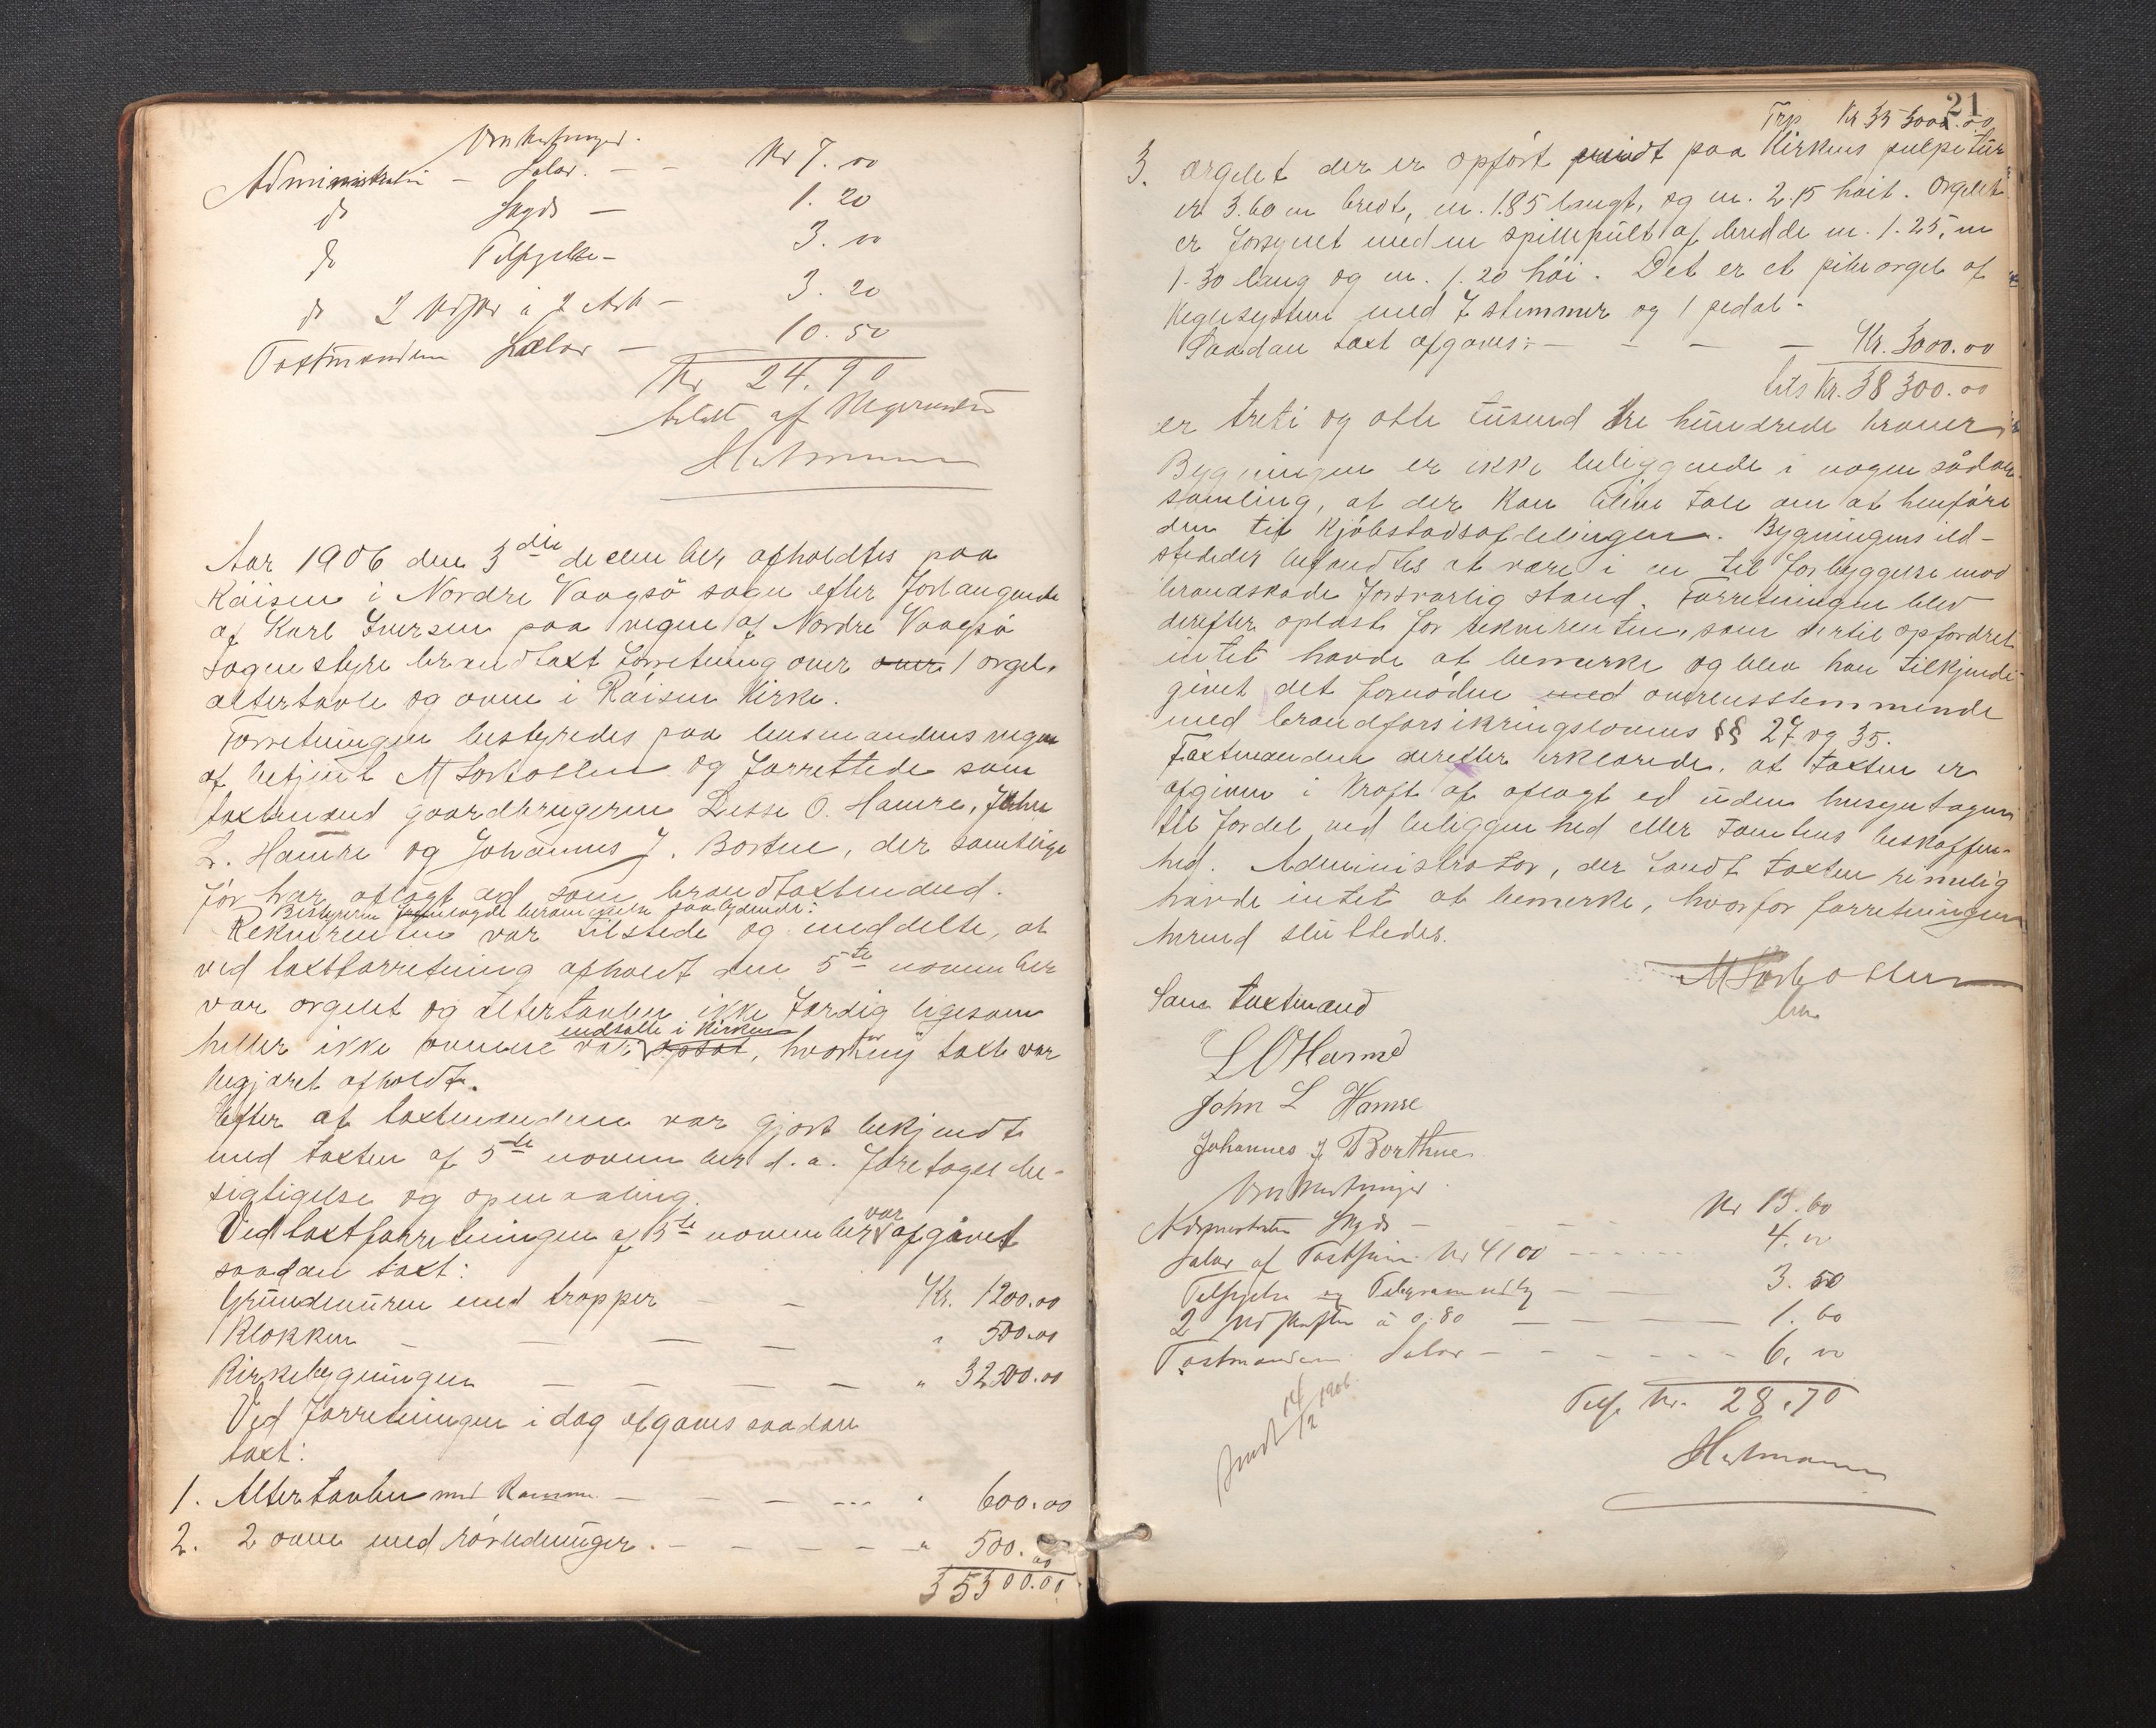 Administrator — Salær. — — Kr 7.00
do Skyds — 1.20
do Tilsigelse — 3.00
do 2 Udskr à 2 Ark — 3.20
Taxtmændene Salær — 10.50
Kr 24.90
betalt af
Aar 1906 den 3die december afholdtes paa
Råisen i Nordre Vaagsö sogn efter forlangende
af Karl Iversen paa vegne af Nordre Vaagsö
sognestyre brandtaxt forretning over over 1 orgel,
altertavle og ovne i Råisen Kirke.
Forretningen bestyredes paa lensmandens vegne
af betjent M Sörbotten og forrettede som
taxtmænd gaardbrugerne Lasse O. Hamre, John
L. Hamre og Johannes J. Bortne, der samtlige
för har aflagt ed som brandtaxtmænd.
Bestyreren fremlagde berammelse saalydende:
Rekvirenten var tilstede og meddelte, at
ved taxtforretning afholdt den 5te november
var orgelet og altertavlen ikke færdig ligesom
heller ikke ovnene var opsat, hvorfor ny taxt var
indsatte i kirken
begjæret afholdt.
Efter at taxtmændene var gjort bekjendt
med taxten af 5te november d. a. foretoges be-
sigtigelse og opmaaling.
Ved taxtforretningen af 5te november var afgivet
saadan taxt:
Grundmuren med trapper — — Kr. 1200.00
Klokken — — — " 500.00
Kirkebygningen — — — — " 32500.00
Ved forretningen i dag afgaves saadan
taxt:
1. Altertavlen med Ramme — — — — " 600.00
2. 2 ovne med rörledninger. — — — — " 500.00
35300.00
21
Trp Kr 35 300.00
3. orgelet der er opfört paa Kirkens pulpitur
er 3.60 m bredt, m. 1.85 langt, og m. 2.15 höit. Orgelet
er forsynet med en spillepult af bredde m. 1.25, m
1.30 lang og m. 1.20 höi. Det er et pibeorgel af
Keglesystem med 7 stemmer og 1 pedal.
Saadan taxt afgaves: — — — — Kr. 3000.00
tils Kr. 38 300.00
er treti og otte tusend tre hundrede kroner
Bygningen er ikke beliggende i nogen sådan
samling, at der kan blive tale om at henföre
den til Kjöbstadsafdelingen. Bygningens ild-
steder befandtes at være i en til forbyggelse mod
brandskade forsvarlig stand. Forretningen blev
derefter oplæst for rekvirenten, som dertil opfordret
intet havde at bemerke og blev han tilkjende-
givet det fornödne med overensstemmende
med brandforsikringslovens §§ 27 og 35.
Taxtmændene derefter erklærede, at taxten er
afgiven i kraft af aflagt ed uden hensyntagen
til fordel ved beliggenhed eller tomtens beskaffen-
hed. Administrator, der fandt taxten rimelig
havde intet at bemerke, hvorfor forretningen
hermed sluttedes.
M Sörbotten
Som taxtmænd
L O Hamre
John L Hamre
Johannes J Borthne
Administrator Skyds — — — — Kr 13.60
Salær af Taxtsum Kr 4100 — — — 4.00
Tilsigelse og Telegramudlæg — — 3.50
2 Udskrifter à 0.80 — — — — 1.60
Taxtmændene Salær — — — — 6.00
Tils. Kr. 28.70
Sendt 14/12 1906